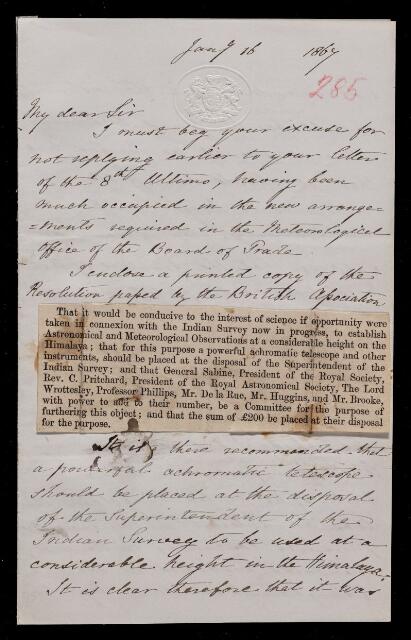 Jany 16 1867
285
My dear Sir
I must beg your excuse for
not replying earlier to your letter
of the 8th Ultimo, having been
much occupied in the new arrange=
=ments required in the Meteorological
Office of the Board of Trade
I enclose a printed copy of the
Resolution passed by the British Association
That it would be conducive to the interest of science if opportunity were
taken in connexion with the Indian Survey now in progress, to establish
Astronomical and Meteorological Observations at a considerable height on the
Himalaya; that for this purpose a powerful achromatic telescope and other
instruments, should be placed at the disposal of the Superintendent of the
Indian Survey; and that General Sabine, President of the Royal Society,
Rev. C. Pritchard, President of the Royal Astronomical Society, The Lord
Wrottesley, Professor Phillips, Mr. De la Rue, Mr. Huggins, and Mr. Brooke,
with power to add to their number, be a Committee for the purpose of
furthering this object; and that the sum of £200 be placed at their disposal
for the purpose.
It is there recommended that
a powerful achromatic telescope
should be placed at the disposal
of the Superintendent of the
Indian Survey to be used at a
considerable height in the Himalaya.
It is clear therefore that it was